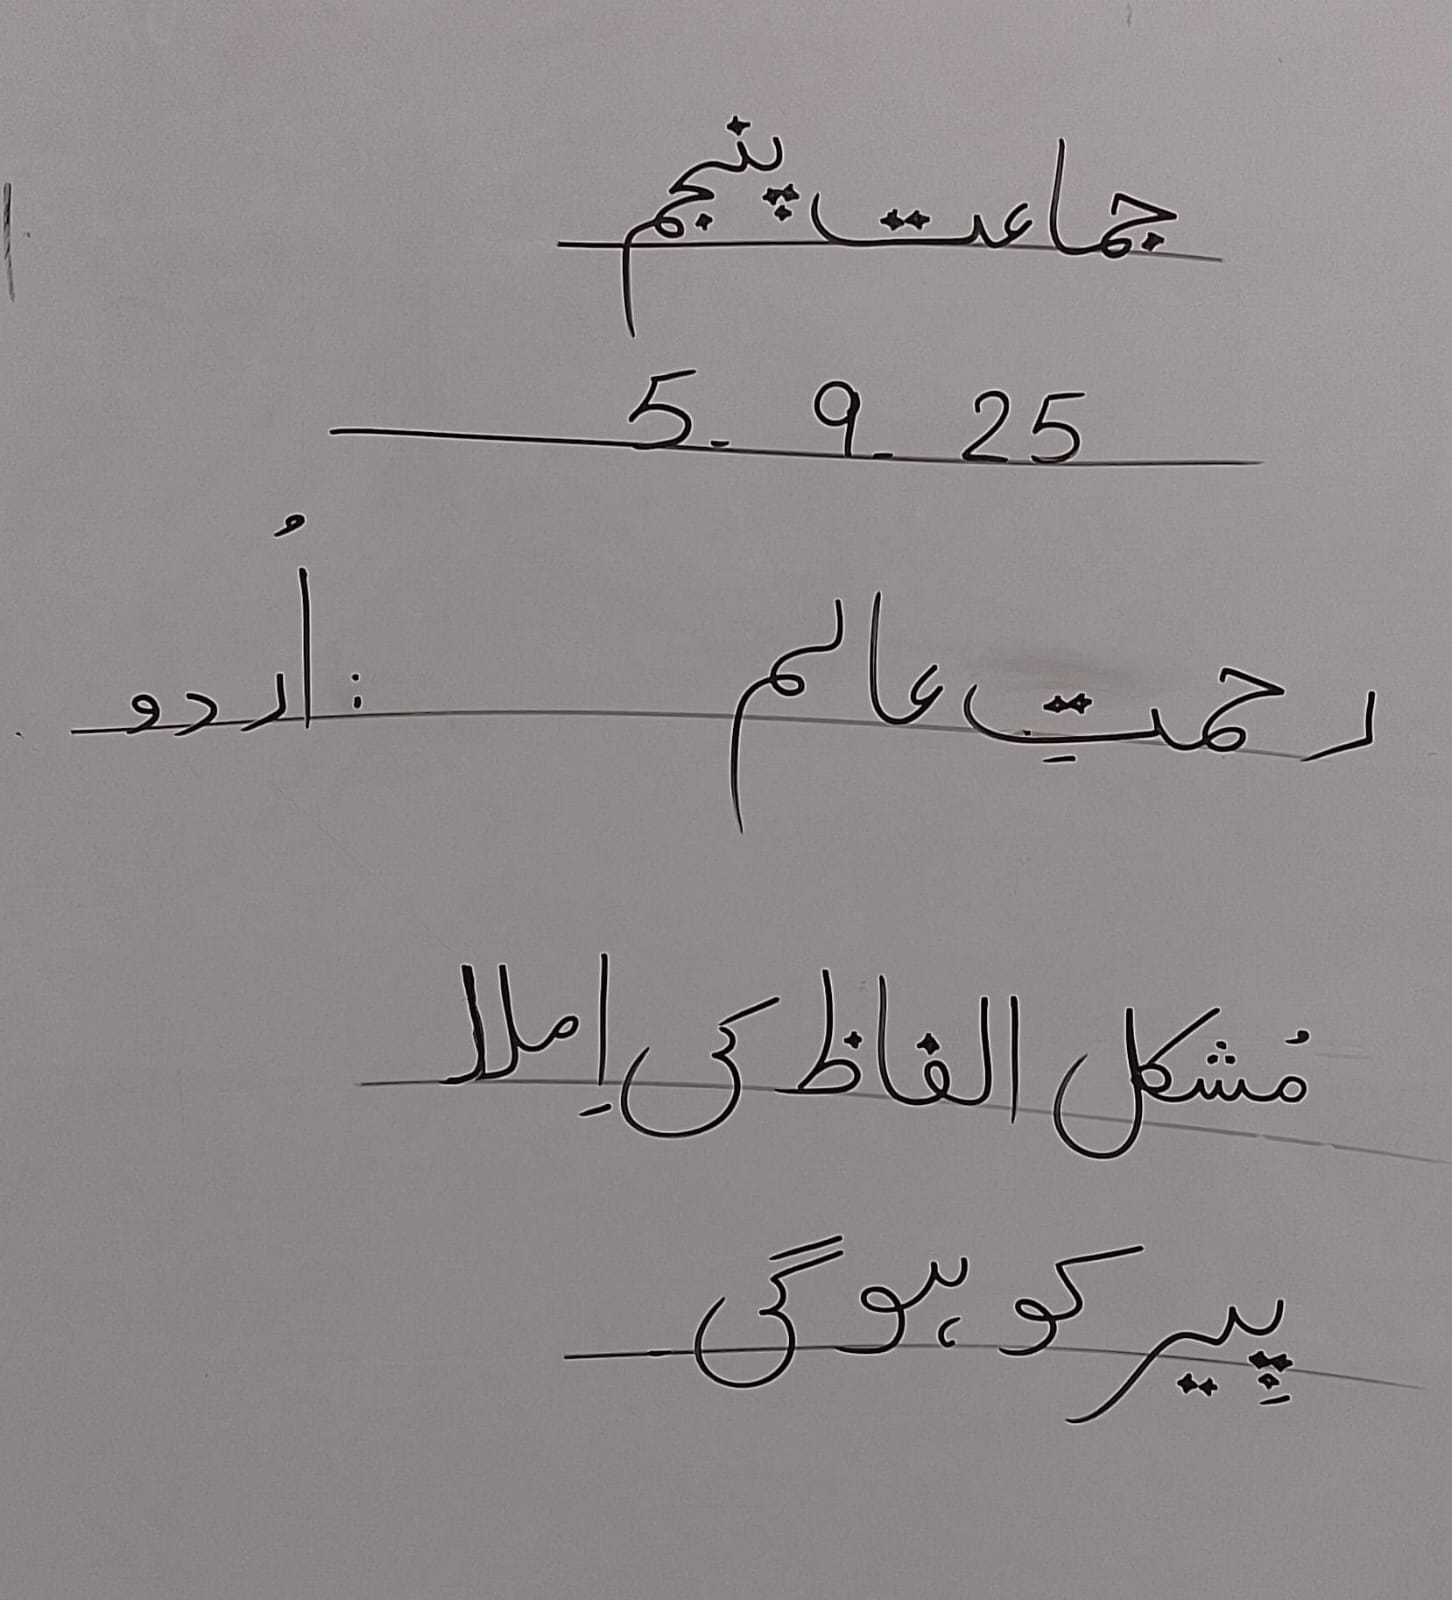 جماعت پنجم
5. 9. 25
رحمتِ عالم : اُردو
مُشکل الفاظ کی اِملا
پِیر کو ہوگی